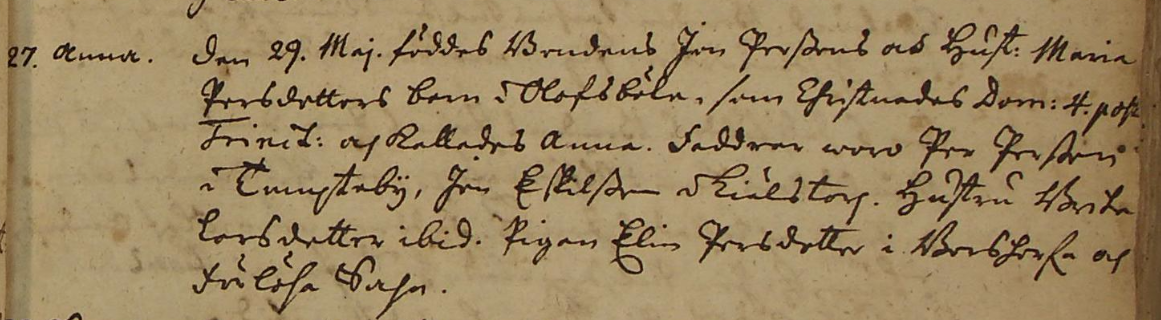 27. Anna. den 29. Maj. föddes Bondens Jon Perßons och Hust: Maria
Persdotters barn i Olofsböle, som Christnades Dom: 4. post
Trinit: och Kallades Anna. Faddrar woro Per Perßon
i Tempteby, Jon Eskilßon i Kiälstorp. Hustru Brita
Larsdotter ibid. Pigan Elin Persdotter i och
Sahn.